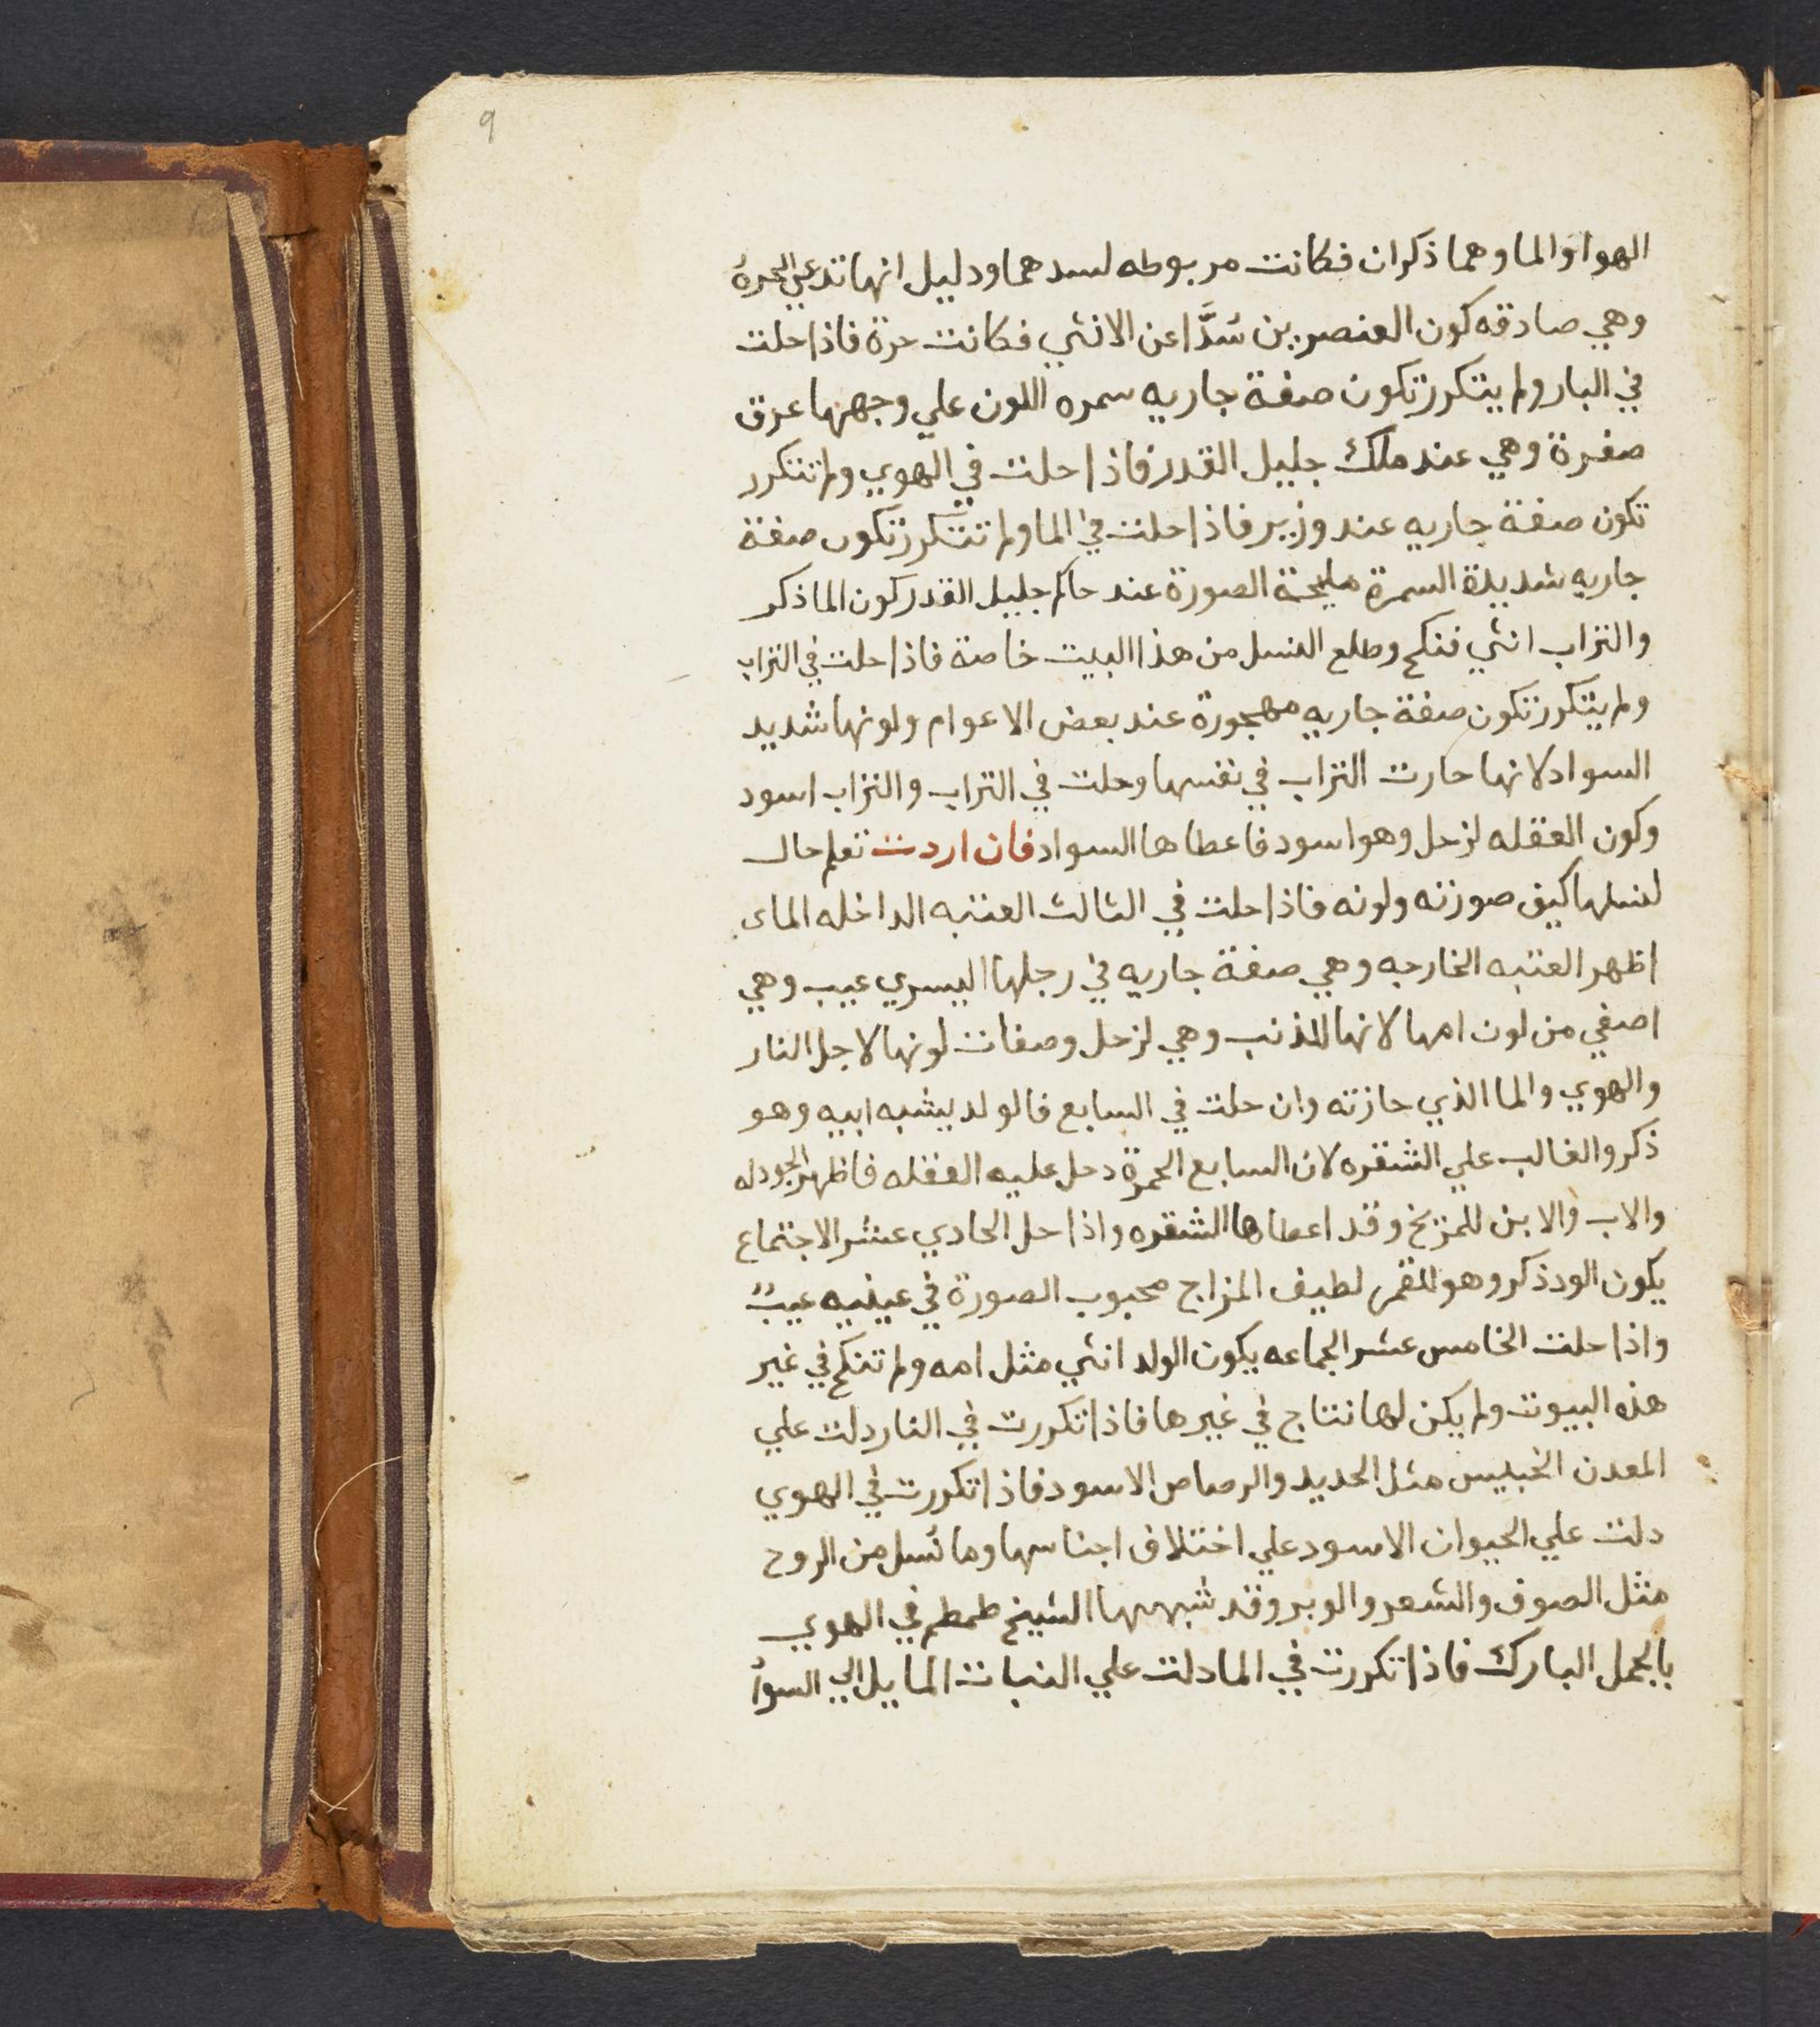 9
الهوا والما وهما ذكران فكانت مربوطه لسدهما ودليل انها تدعي الحرة
وهي صادقه كون العنصرين سَدَّا عن الانثي فكانت حرة فاذا حلت
في النار ولم يتكرر تكون صفة جاريه سمره اللون علي وجهها عرق
صفرة وهي عند ملك جليل القدر فاذا حلت في الهوي ولم تتكرر
تكون صفة جاريه عند وزير فاذا حلت في الما ولم تتكرر تكون صفة
جاريه شديدة السمرة مليحة الصورة عند حاكم جليل القدر كون الما ذكر
والتراب انثي فنكح وطلع النسل من هذا البيت خاصة فاذا حلت في التراب
ولم يتكرر تكون صفة جاريه مهجورة عند بعض الاعوام ولونها شديد
السواد لانها حارت التراب في نفسها وحلت في التراب والتراب اسود
وكون العقله لزحل وهو اسود فاعطاها السواد فان اردت تعلم حال
نسلها كيف صورته ولونه فاذا حلت في الثالث العتبه الداخله الماى
اظهر العتبه الخارجه وهي صفة جاريه في رجلها اليسري عيب وهي
اصفي من لون امها لانها للذنب وهي لزحل وصفات لونها لاجل النار
والهوي والما الذي حازته وان حلت في السابع فالولد يشبه ابيه وهو
ذكر والغالب علي الشقره لان السابع الحمرة دحل عليه العقله فاظهر الجودله
والاب والابن للمريخ وقد اعطاها الشقره واذا حل الحادي عشر الاجتماع
يكون الود ذكر وهو للقمر لطيف المزاج محبوب الصورة في عينيه عيبٌ
واذا حلت الخامس عشر الجماعه يكون الولد انثي مثل امه ولم تنكح في غير
هذه البيوت ولم يكن لها نتاج في غيرها فاذا تكررت في النار دلت علي
المعدن الخبيس مثل الحديد والرصاص الاسود فاذا تكررت في الهوي
دلت علي الحيوان الاسود علي اختلاف اجناسها وما نسل من الروح
مثل الصوف والشعر والوبر وقد شبهها الشيخ طمطم في الهوي
بالجمل البارك فاذا تكررت في الما دلت علي النبات المايل الي السوا